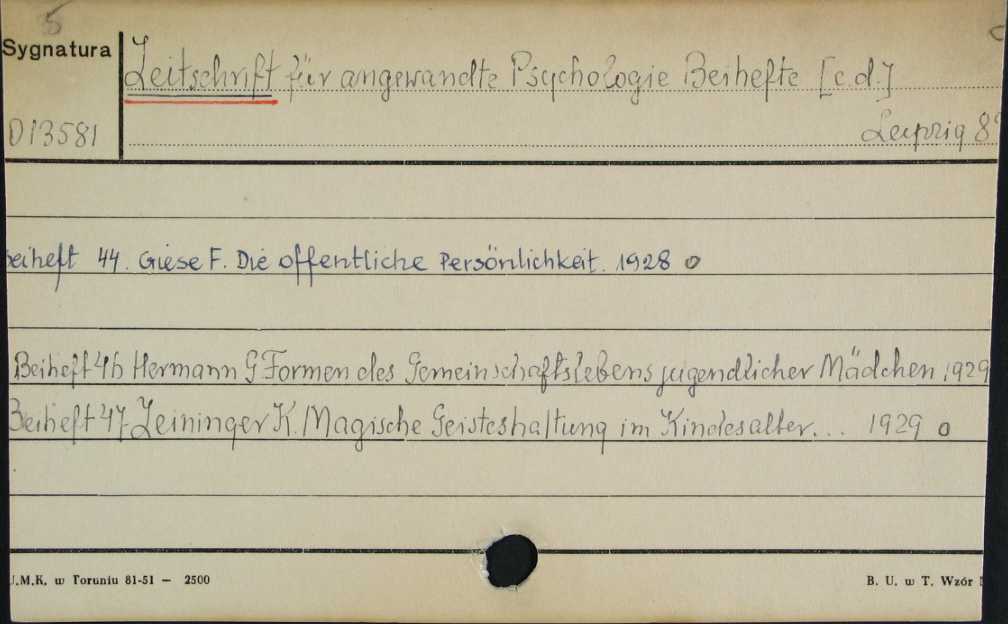 5
Sygnatura
Zeitschrift für angewandte Psychologie Beihefte [c.d.]
D13581
Leipzig 8°
Beiheft 44. Giese F. Die offentliche Persönlichkeit. 1928 o
Beiheft 46 Hermann G Formen des Gemeinschaftslebens jugendlicher Mädchen. 1929
Beiheft 47 Zeininger K. Magische Geisteshaltung im Kindesalter... 1929 o
U.M.K. w Toruniu 81-51 — 2500
B. U. w T. Wzór